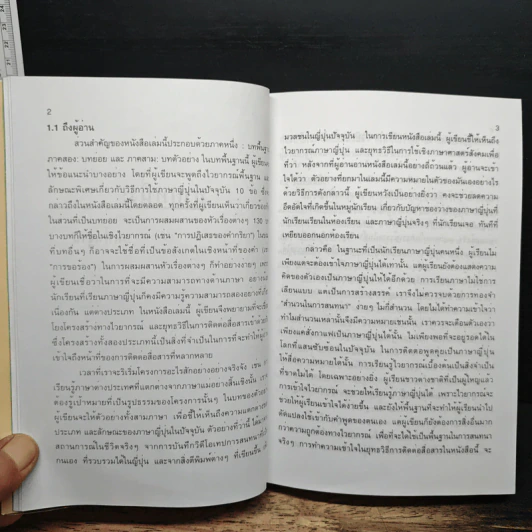 2
1.1 ถึงผู้อ่าน
สวนสำคัญของหนังสือเล่มนี้ประกอบด้วยภาคหนึ่ง : บทพื้นฐ
ภาคสอง: บทย่อย และ ภาคสาม: บทตัวอย่าง ในบทพื้นฐานนี้ ผู้เขีย
ให้ข้อแนะนำบางอย่าง โดยที่ผู้เขียนจะพูดถึงไวยากรณ์พื้นฐาน
ลักษณะพิเศษเกี่ยวกับวิธีการใช้ภาษาญี่ปุ่นในปัจจุบัน 10 ข้อ
กล่าวถึงในหนังสือเล่มนี้โดยตลอด ทุกครั้งที่ผู้เขียนเห็นว่าเกี่ยวข้อง
ในส่วนที่เป็นบทย่อย จะเป็นการผสมผสานของหัวเรื่องต่างๆ 130
บางบทก็ให้ชื่อในเชิงไวยากรณ์ (เช่น "การปฏิเสธของคำกริยา")
ที่บทอื่นๆ ก็อาจจะใช้ชื่อที่เป็นข้อสังเกตในเชิงหน้าที่ของคำ
"การขอร้อง") ในการผสมผสานหัวเรื่องต่างๆ ก็ทำอย่างง่ายๆ
ผู้เขียนเชื่อว่าในการที่จะมีความสามารถทางด้านภาษา
นักเรียนที่เรียนภาษาญี่ปุ่นก็คงมีความรู้ความสามารถสองอย่าง
เนื่องกัน แต่ต่างประเภท ในหนังสือเล่มนี้ ผู้เขียนจึงพยายามที่จะเชื่
โยงโครงสร้างทางไวยากรณ์ และยุทธวิธีในการติดต่อสื่อสารเข้าด้วย
ซึ่งโครงสร้างทั้งสองประเภทนี้เป็นสิ่งที่จำเป็นในการที่จะทำให้ผู้
เข้าใจถึงหน้าที่ของการติดต่อสื่อสารที่หลากหลาย
เวลาที่เราจะริเริ่มโครงการอะไรสักอย่างอย่างจริงจัง เช่น
เรียนรู้ภาษาต่างประเทศที่แตกต่างจากภาษาแม่อย่างสิ้นเชิงนั้น เรา
ต้องรู้เป้าหมายที่เป็นรูปธรรมของโครงการนั้นๆ ในบทของตัวอย่
ผู้เขียนจะให้ตัวอย่างทั้งสามภาษา เพื่อชี้ให้เห็นถึงความแตกต่าง
ประเภท และลักษณะของภาษาญี่ปุ่นในปัจจุบัน ตัวอย่างที่ว่านี้ ได้มาจ
สถานการณ์ในชีวิตจริงๆ จากการบันทึกวิดีโอเทปการสนทนา
กนเอง ที่รวบรวมได้ในญี่ปุ่น และจากสิ่งตีพิมพ์ต่างๆ ที่เขียนขึ้น
3
มวลชนในญี่ปุ่นปัจจุบัน ในการเขียนหนังสือเล่มนี้ ผู้เขียนชี้ให้เห็นถึง
ไวยากรณ์ภาษาญี่ปุ่น และยุทธวิธีในการใช้เชิงภาษาศาสตร์สังคมเพื่อ
ที่ว่า หลังจากที่ผู้อ่านอ่านหนังสือเล่มนี้อย่างถี่ถ้วนแล้ว ผู้อ่านจะเข้า
ใจได้ว่า ตัวอย่างที่ยกมาในเล่มนี้มีความหมายในตัวของมันเองอย่างไร
ด้วยวิธีการดังกล่าวนี้ ผู้เขียนหวังเป็นอย่างยิ่งว่า คงจะช่วยลดความ
อึดอัดใจที่เกิดขึ้นในหมู่นักเรียน เกี่ยวกับปัญหาของว่างของภาษาญี่ปุ่นที่
นักเรียนเรียนในห้องเรียน และภาษาญี่ปุ่นจริงๆ ที่นักเรียนเจอ ทันทีที่
เหยียบออกนอกห้องเรียน
กล่าวคือ ในฐานะที่เป็นนักเรียนภาษาญี่ปุ่นคนหนึ่ง ผู้เรียนไม่
เพียงแต่จะต้องเข้าใจภาษาญี่ปุ่นได้เท่านั้น แต่ผู้เรียนยังต้องแสดงความ
คิดของตัวเองเป็นภาษาญี่ปุ่นให้ได้อีกด้วย การเรียนภาษาไม่ใช่การ
เลียนแบบ แต่เป็นการสร้างสรรค์ เราจึงไม่ควรจบด้วยการท่องจำ
"สำนวนในการสนทนา" ง่ายๆ ไม่กี่สำนวน โดยไม่ได้ทำความเข้าใจว่า
ทำไมสำนวนเหล่านั้นจึงมีความหมายเช่นนั้น เราควรจะเตือนตัวเองว่า
เพียงแค่สั่งกาแฟเป็นภาษาญี่ปุ่นได้นั้น ไม่เพียงพอที่จะอยู่รอดได้ใน
โลกที่แสนซับซ้อนในปัจจุบัน ในการติดต่อพูดคุยเป็นภาษาญี่ปุ่น
ให้สื่อความหมายได้นั้น การเรียนรู้ไวยากรณ์เบื้องต้นเป็นสิ่งจำเป็น
ที่ขาดไม่ได้ โดยเฉพาะอย่างยิ่ง ผู้เรียนชาวต่างชาติที่เป็นผู้ใหญ่แล้ว
การเข้าใจไวยากรณ์ จะช่วยให้เรียนรู้ภาษาญี่ปุ่นได้ เพราะไวยากรณ์จะ
ช่วยให้ผู้เรียนเข้าใจได้ง่ายขึ้น และยังให้พื้นฐานที่จะทำให้ผู้เรียนนำไป
ดัดแปลงใช้เข้ากับคำพูดของตนเอง แต่ผู้เรียนก็ยังต้องการสิ่งอื่นมาก
กว่าความถูกต้องทางไวยากรณ์ เพื่อที่จะได้ใช้เป็นพื้นฐานในการสนทนา
จริงๆ การทำความเข้าใจในยุทธวิธีการติดต่อสื่อสารในหนังสือนี้ จะ